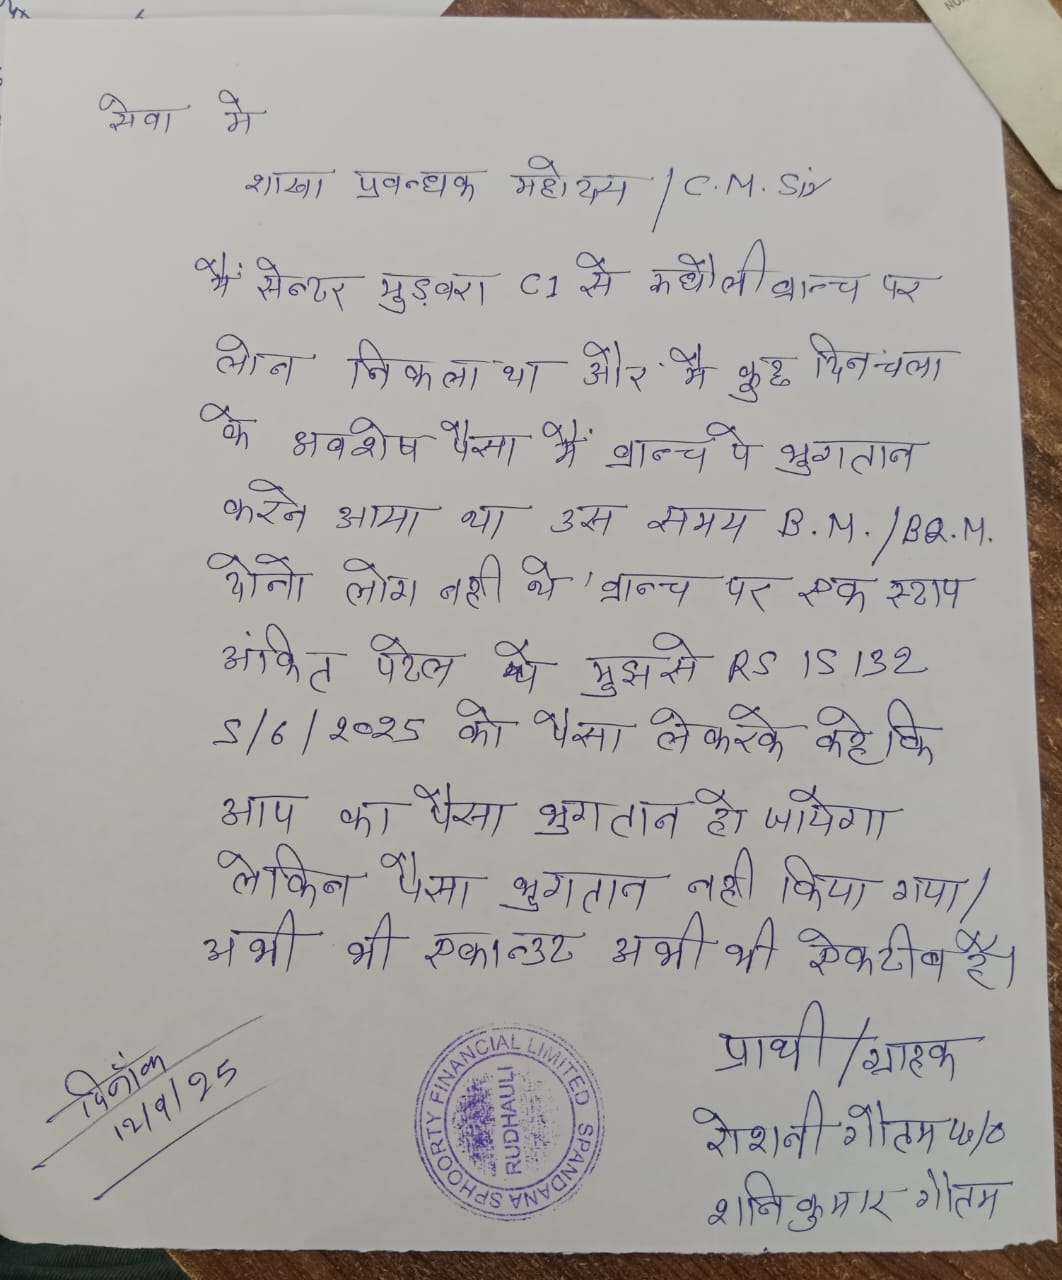 सेवा मे
शाखा प्रवन्धक महोदय / C.M. Sir
मैं सेन्टर मुड़वरा C1 से रुधौली व्रान्च पर
लोन निकला था और मै कुछ दिन चला
के अवशेष पैसा मैं व्रान्च पे भुगतान
करने आया था उस समय B.M./BQ.M.
दोनो लोग नही थे व्रान्च पर एक स्टाप
अंकित पटेल थे मुझसे RS 15132
5/6/2025 को पैसा लेकरके कहे कि
आप का पैसा भुगतान हो जायेगा
लेकिन पैसा भुगतान नही किया गया/
अभी भी एकाउन्ट अभी भी ऐकटीव है।
प्रार्थी / ग्राहक
रोशनी गौतम W/O
शनिकुमार गौतम
दिनाँक
12/9/25
SPANDANA SPHOORTY FINANCIAL LIMITED
RUDHAULI